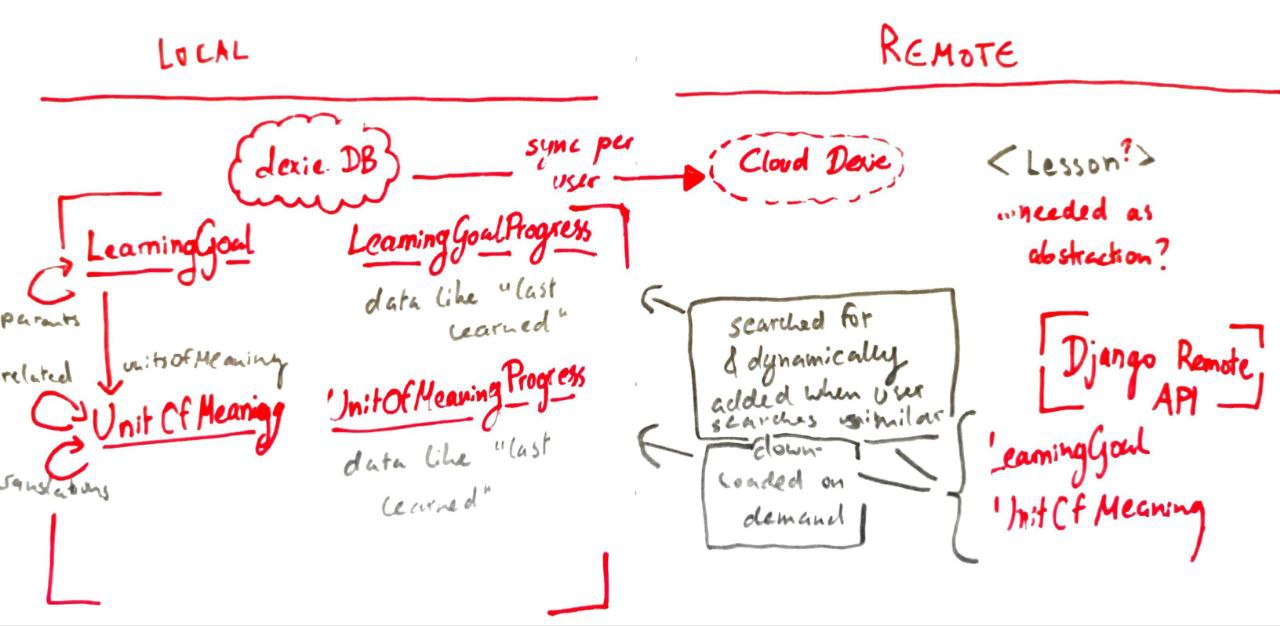 LOCAL
REMOTE
dexie.DB
sync per
user
Cloud Dexie
<Lesson?>
...needed as
abstraction?
LearningGoal
LearningGoalProgress
parents
data like "last
learned"
unitsOfMeaning
related
UnitOfMeaning
UnitOfMeaningProgress
translations
data like "last
learned"
searched for
& dynamically
added when user
searches similar
down-
loaded on
demand
Django Remote
API
LearningGoal
UnitOfMeaning